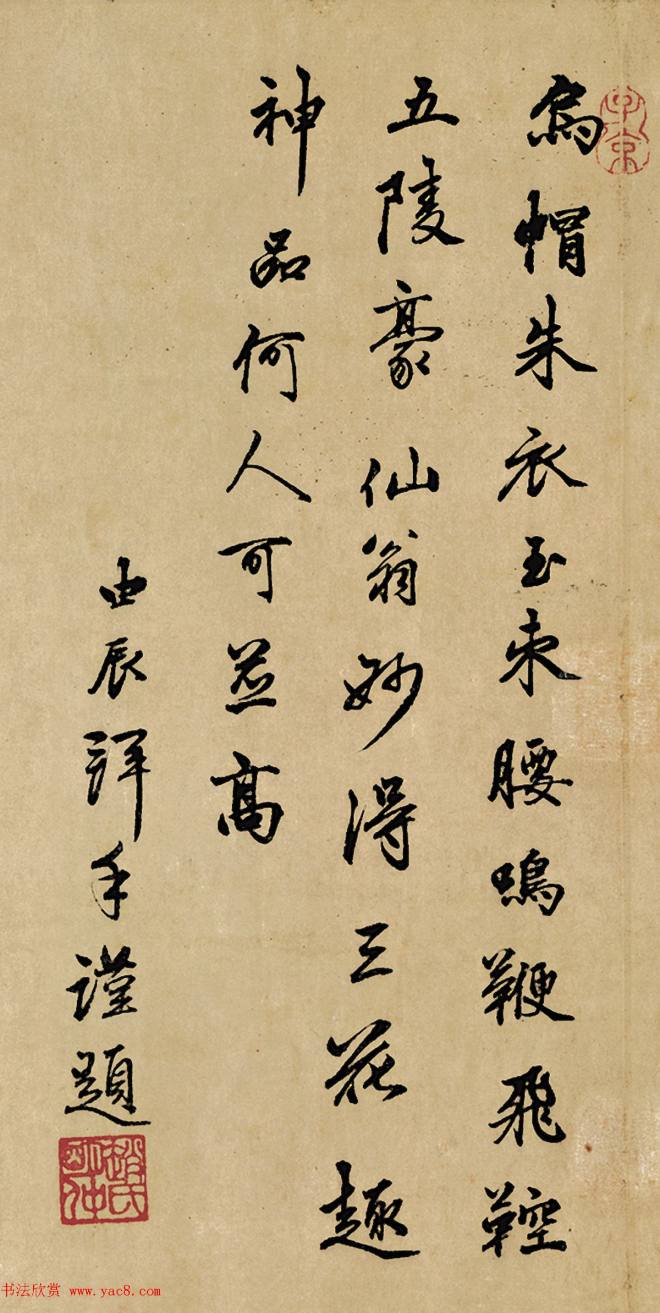 烏帽朱衣玉束腰鳴鞭飛鞚
五陵豪仙翁妙得三花趣
神品何人可並高
由辰拜手謹題
趙氏由辰
子京
书法欣赏 www.yac8.com